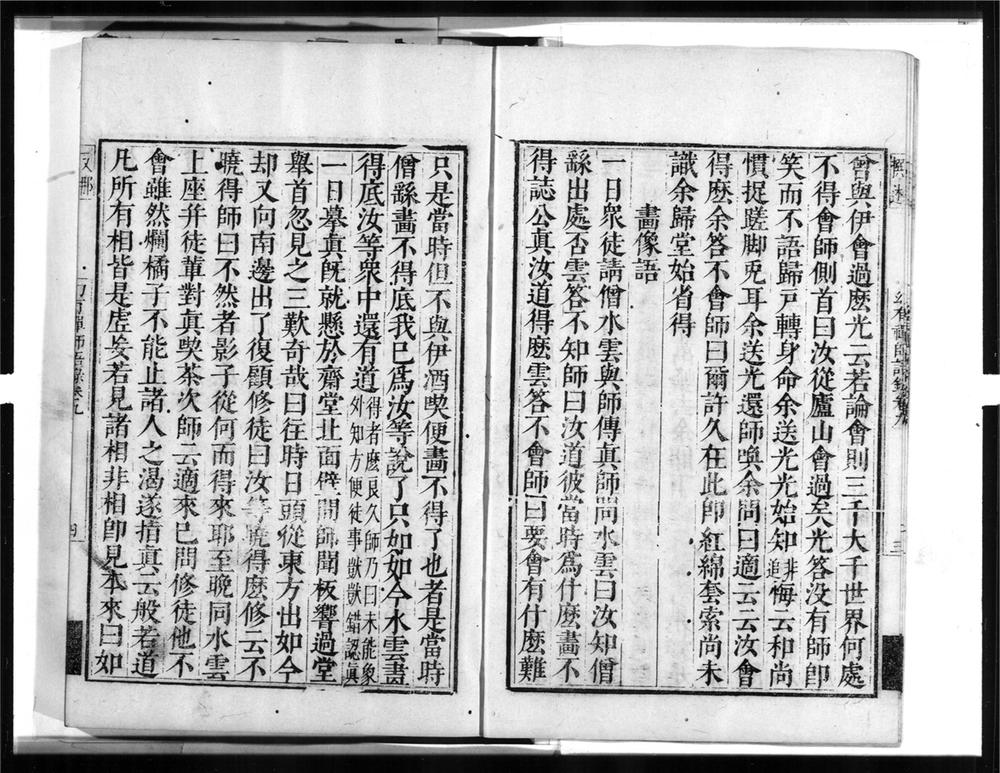 會與伊會過麽光云若論會則三千大千世界何處
不得會師側首曰汝從廬山會過矣光答没有師卽
笑而不語歸戸轉身命余送光光始知非追悔云和尚
慣捉蹉脚兎耳余送光還師喚余問曰適云云汝會
得麽余答不會師曰爾許久在此卽紅綿套索尚未
識余歸堂始省得
畫像語
一日衆徒請僧水雲與師傳真師問水雲曰汝知僧
繇出處否雲答不知師曰汝道彼當時爲什麽畫不
得誌公真汝道得麽雲答不會師曰要會有什麽難
只是當時但不與伊酒喫便畫不得了也者是當時
僧繇畫不得底我已爲汝等說了只如如今水雲畫
得底汝等衆中還有道得者麽良久師乃曰未能象外知方便徒事猷猷錯認眞
一日摹真旣就懸於齋堂北面壁間師聞板響過堂
舉首忽見之三歎奇哉曰往時日頭從東方出如今
却又向南邊出了復顧修徒曰汝等曉得麽修云不
曉得師曰不然者影子從何而得來耶至晚同水雲
上座幷徒輩對真喫茶次師云適來已問修徒他不
會雖然爛橘子不能止諸人之渴遂指真云般若道
凡所有相皆是虛妄若見諸相非相卽見本來曰如
禪師語錄卷九
四
三